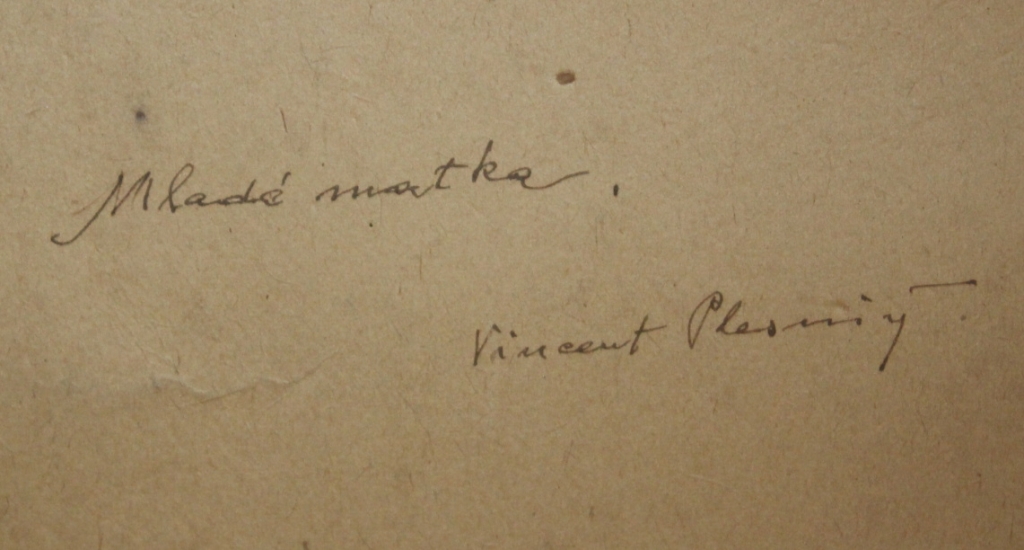 Mladá matka.
Vincent Plesnivý